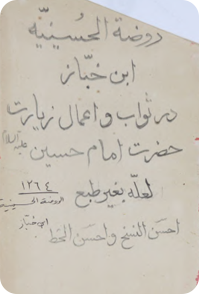 روضة الحُسَينيّه
ابن خبّاز
در ثواب و اعمال زيارت
حضرت امام حسين عليه السلام
لعلّه بغير طبع
١٢٦٤
الروضة الحسينية
ابن خباز
احسن النسخ و احسن الخط